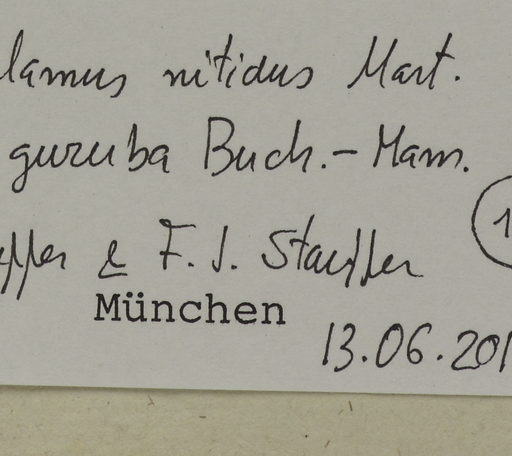 lamus nitidus Mart.
guruba Buch.-Ham.
1
& F. J. Stauffer
München
13.06.201